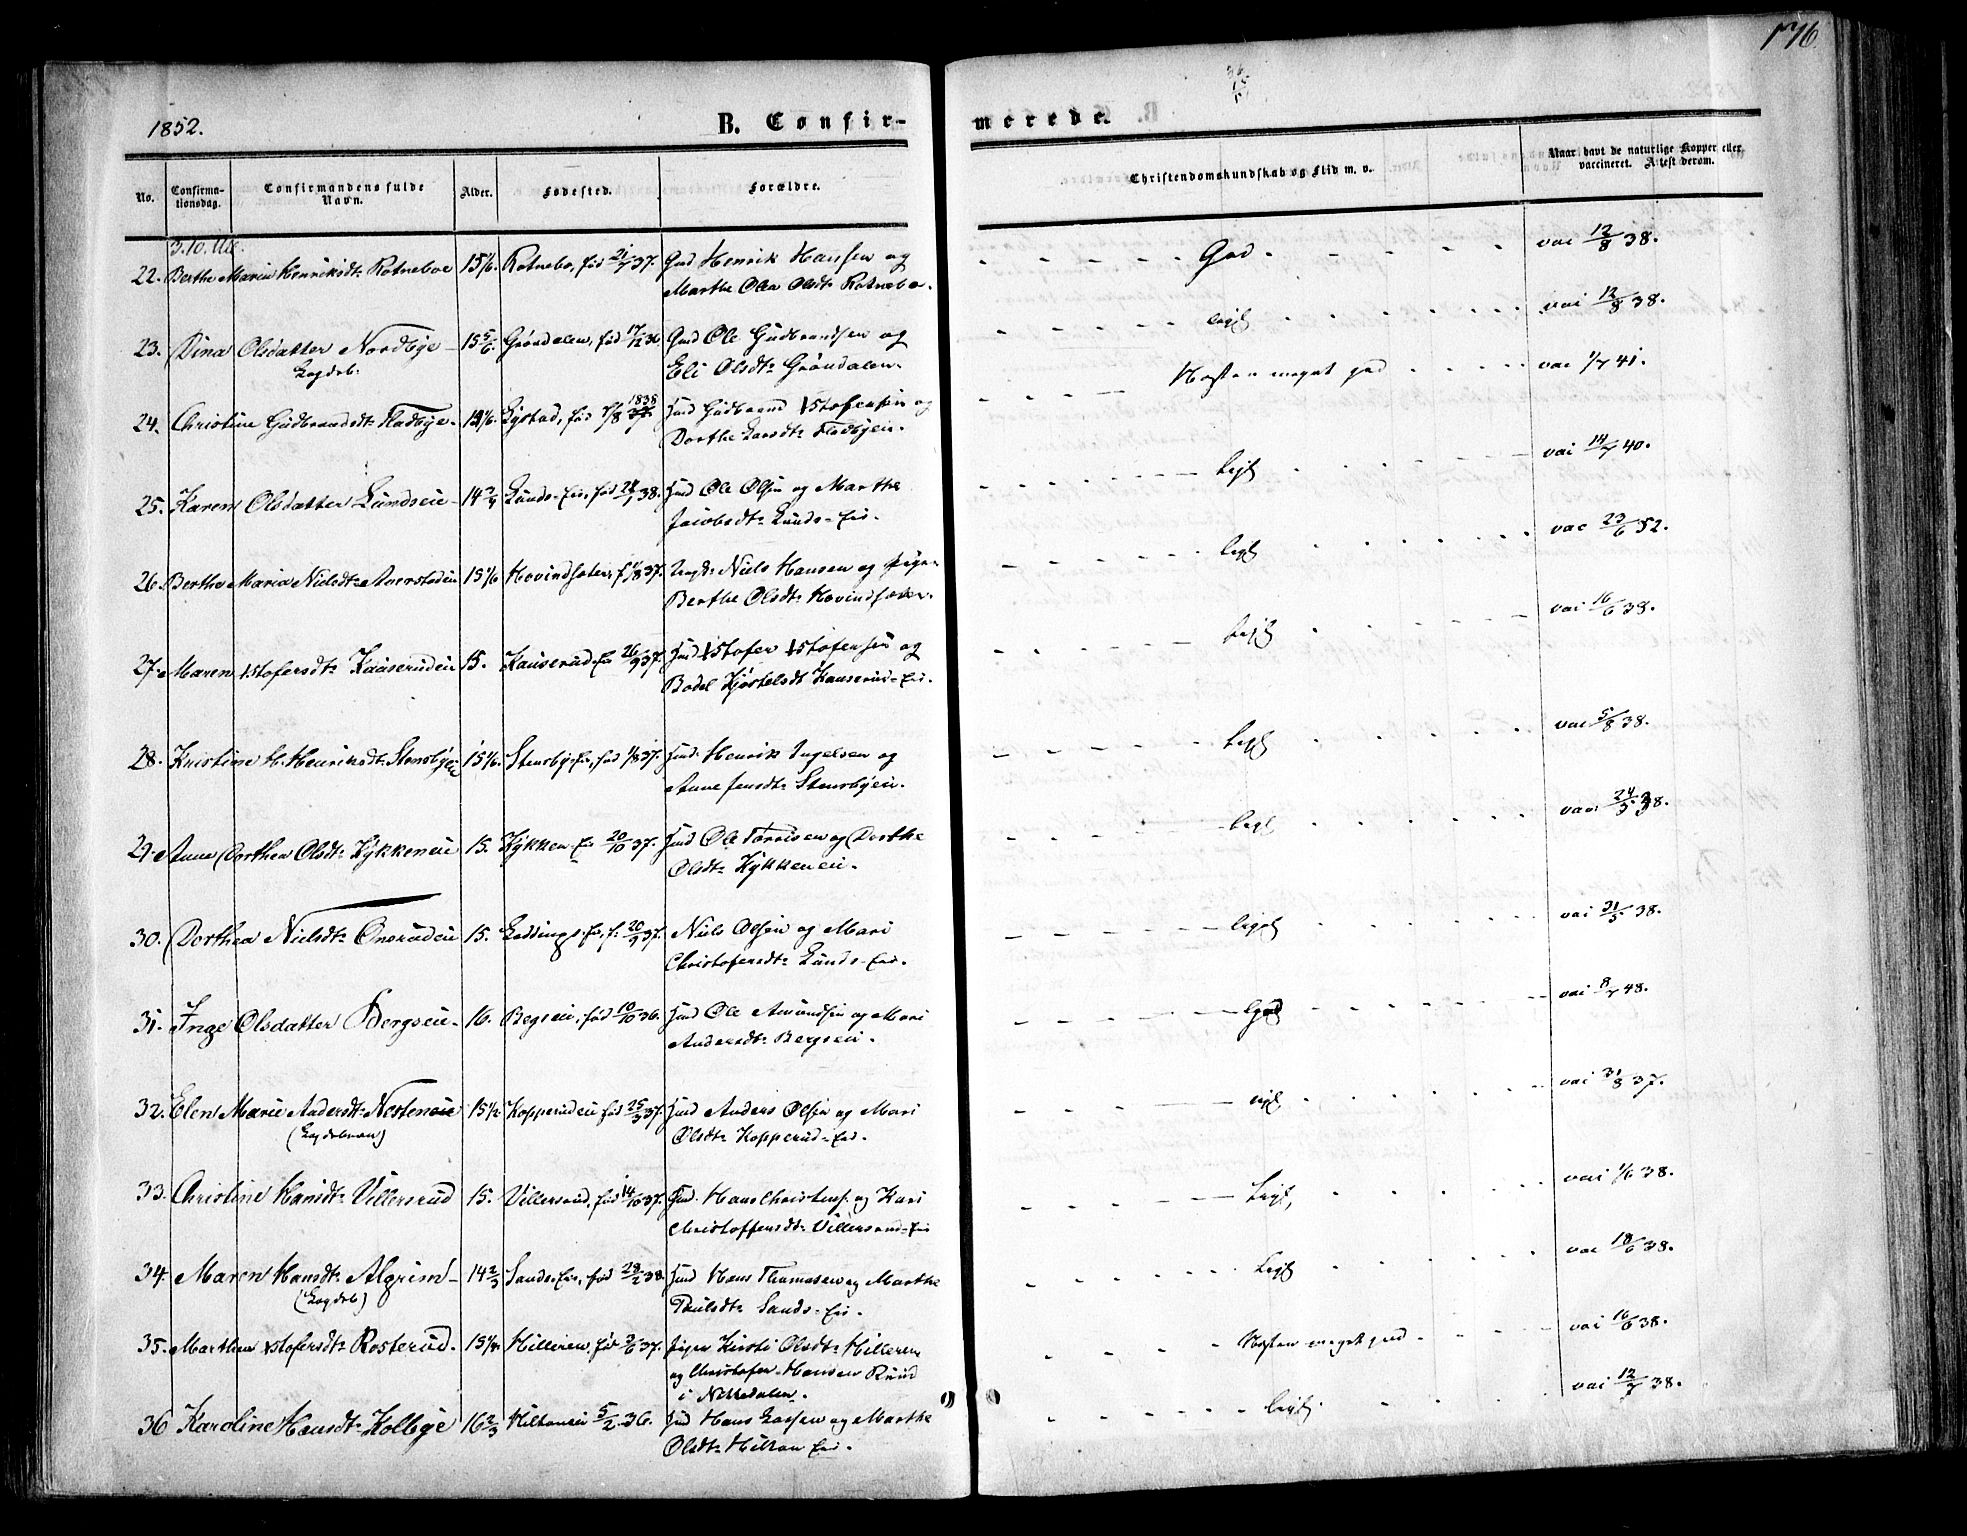 176
1852.
B. Confir-
merede.
No.
Confirma-
tionsdag.
Confirmandens fulde
Navn.
Alder.
Fødested.
Forældre.
Christendomskundskab og Flid m. v.
Naar havt de naturlige Kopper eller
vaccineret. Attest derom.
22. Berthe Maria Henriksdt: Rotneboe 15 1/6. Rotnebo, fød 37. Gmd Henrik Hansen og
Marthe Olea Olsdt: Rotnebo.
God. vac 12/8 38.
23. Dina Olsdatter Nordbye 15 5/6. Grøndalen, fød 17/12 36 Gmd Ole Gudbrandsen og
Eli Olsdt: Grøndalen.
Løgdeb.
ligl vac 12/8 38.
24. Christine Gudbrandsdt: Fladbye. Lystad, fød 1838 Hmd Gudbrand Xstofersen og
Dorthe Larsdt: Fladbyeie.
Næsten meget god vac 1/7 41.
25. Karen Olsdatter Lundseie 14 3/4 Lunds-Eie, fød 38. Hmd Ole Olsen og Marthe
Jacobsdt: Lunds-Eie.
Ligl vac 14/7 40.
26. Berthe Maria Nielsdt: 15 1/6 Hovindsæter, f. 1/8 37. Niels Hansen og Pige
Berthe Olsdt: Hovindsæter.
ligl vac 23/6 52.
27. Maren Xstofersdt: Kauserudeie 15. Kauserud-Eie 26/9 37. Hmd Xstofer Xstofersen og
Bodel Kjøstelsdt Kauserud-Eie.
Ligl vac 16/6 38.
28. Kristine H. Henriksdt: Stensbyeie 15 1/6. Stensbye-Eie, fød 1/8 37. Hmd. Henrik Ingelsen og
Anne Jensdt: Stensbyeie.
Ligl vac 5/8 38.
29. Anne Dorthea Olsdt: Kykkeneie 15. Kykken-Eie 20/10 37. Hmd Ole Torrisen og Dorthe
Olsdt: Kykkeneie.
ligl vac 24/5 38.
30. Dorthea Nielsdt: Onsrudeie 15. f. 20/9 37. Niels Olsen og Mari
Christofersdt: Lunds-Eie.
ligel vac 31/5 38.
31. Inge Olsdatter Bergseie 16. Begseie, fød 10/10 36. Hmd Ole Amundsen og Mari
Andersdt: Bergseie.
God vac 8/7 48.
32. Elen Marie Andersdt: Nesteneie 15 1/2 Kopperudeie fød 25/3 37. Hmd Anders Olsen og Mari
(Løgdebarn) Olsdt: Kopperud-Eie.
ligl vac 31/8 37.
33. Christine Hansdt: Villersrud 15. Villersrud, fød 14/10 37. Gmd. Hans Christens. og Kari
Christoffersdt: Villersrud-Eie
Ligl, vac 1/6 38.
34. Maren Hansdt: Algrim 14 2/3 Sands-Eie, fød 28/2 38. Hmd Hans Thomasen og Marthe
(Løgdeb) Poulsdt: Sands-Eie.
Ligl vac 18/6 38.
35. Marthea Xstofersdt: Rosterud. 15 1/4. Hilleren, fød 37. Pigen Kirsti Olsdt: Hilleren
og Christofer Hansen Ruud
i Nittedalen.
Næsten meget god vac 16/6 38.
36 Karoline Hansdt: Kolbye 16 2/3 Hiltoneie 5/2 36. Hmd Hans Larsen og Marthe
Olsdt: Hilton Eie.
ligl. vac 12/7 38.